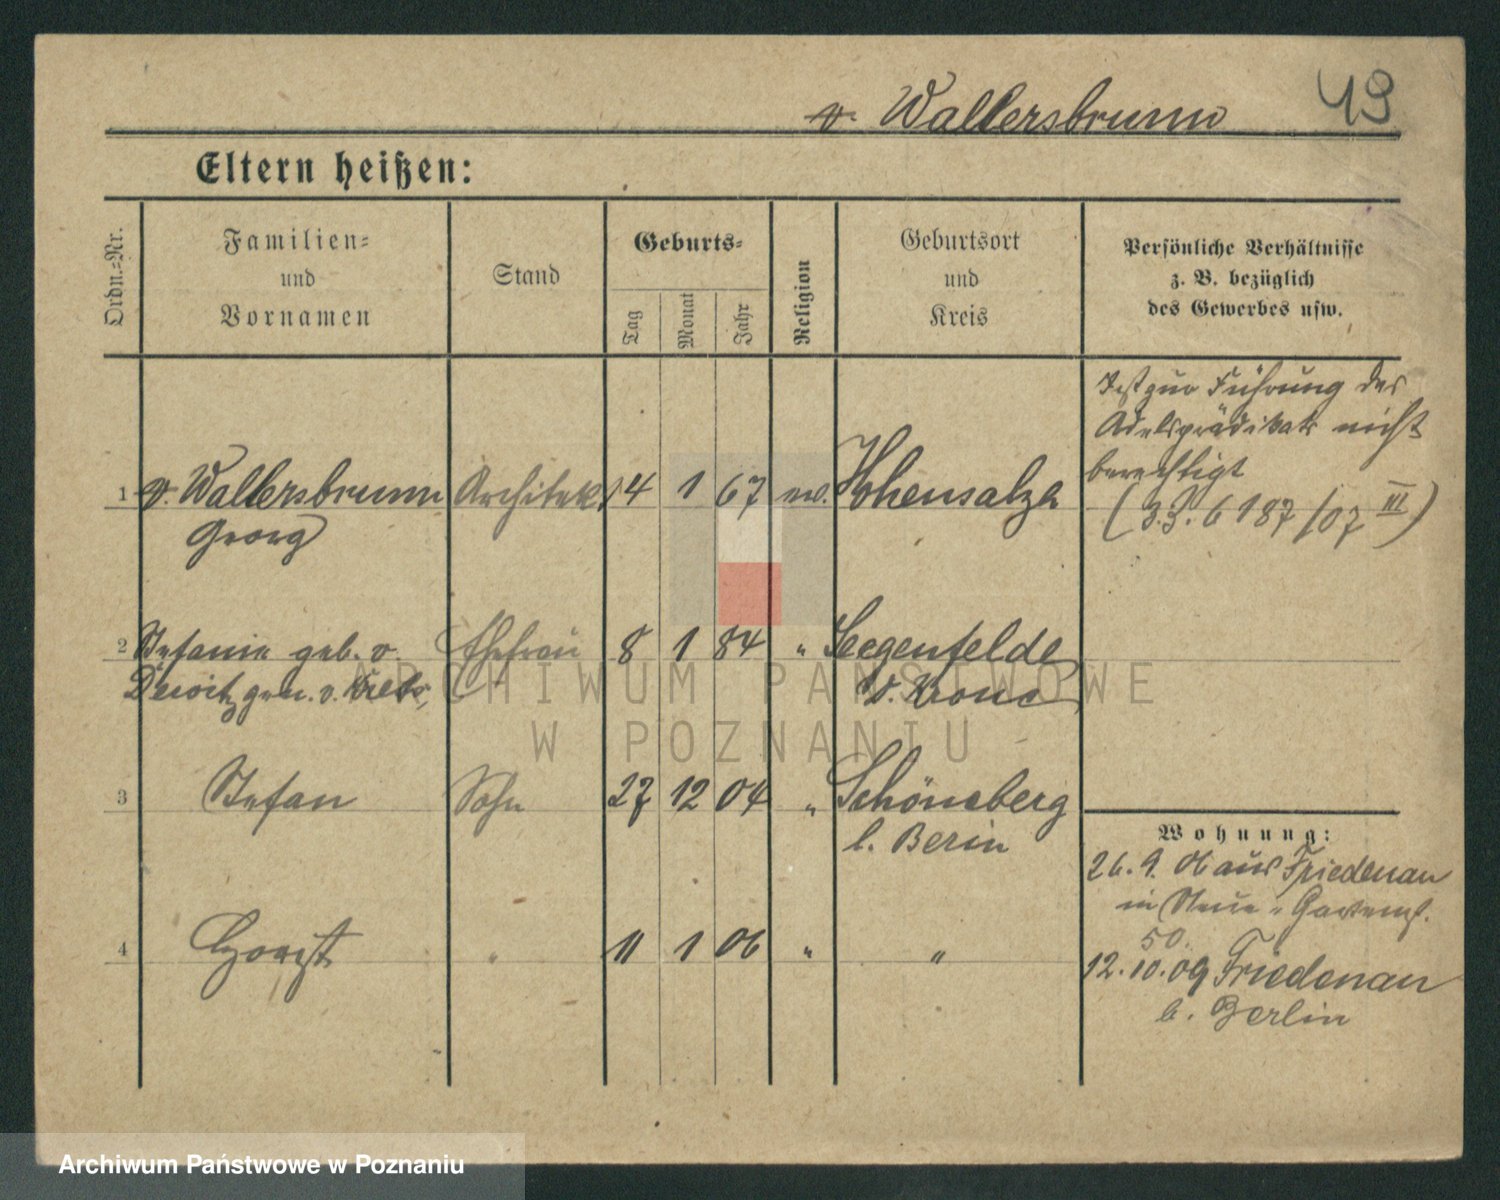 v. Wallersbrunn 49
Eltern heißen:
Ordn.=Nr.
Familien=
und
Vornamen
Stand
Geburts=
Tag
Monat
Jahr
Religion
Geburtsort
und
Kreis
Persönliche Verhältnisse
z. B. bezüglich
des Gewerbes usw.
Ist zur Führung des
Adelsprädikats nicht
berechtigt
(J.S. 6187/07 III)
1 v. Wallersbrunn Architekt 14 1 67 ev. Hohensalza
Georg
2 Stefanie geb. v. Ehefrau 8 1 84 " Seegenfelde
gen. v. D. Krone
3 Stefan Sohn 27 12 04 " Schöneberg
b. Berin
4 Horst " 11 1 06 " "
Wohnung:
26. 9. 06 aus Friedenau
in Neue - Gartenst.
50.
12. 10. 09 Friedenau
b. Berlin
ARCHIWUM PAŃSTWOWE
W POZNANIU
Archiwum Państwowe w Poznaniu